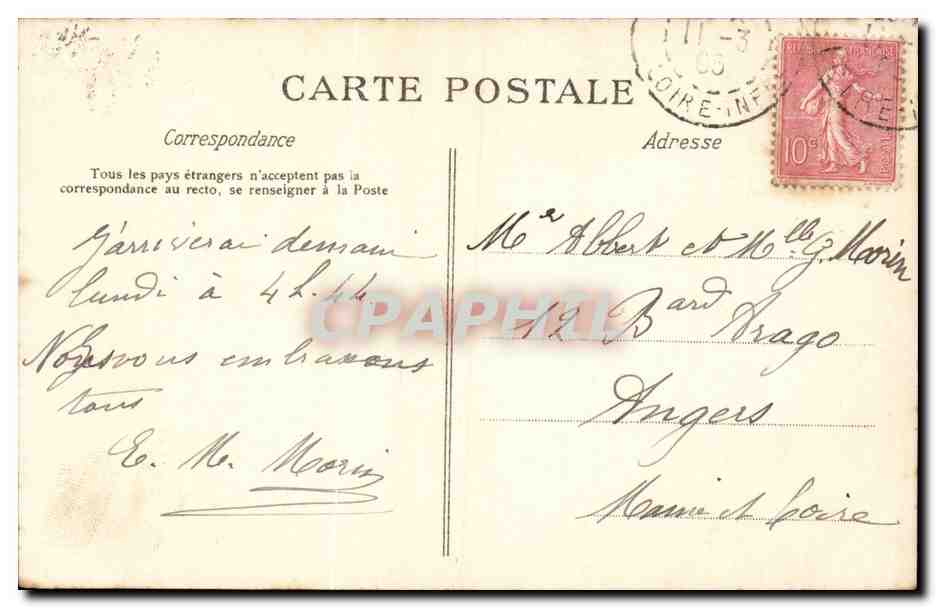 CARTE POSTALE
Correspondance
Tous les pays étrangers n'acceptent pas la
correspondance au recto, se renseigner à la Poste
J'arriverai demain
lundi à 4h.44
Nous vous embrassons
tous
E. M. Morin
Adresse
Mr Albert et Mlle G. Morin
12 Bard Arago
Angers
Maine et Loire
11 -3
LOIRE-INF
FRANÇAISE
10c
CPAPHIL